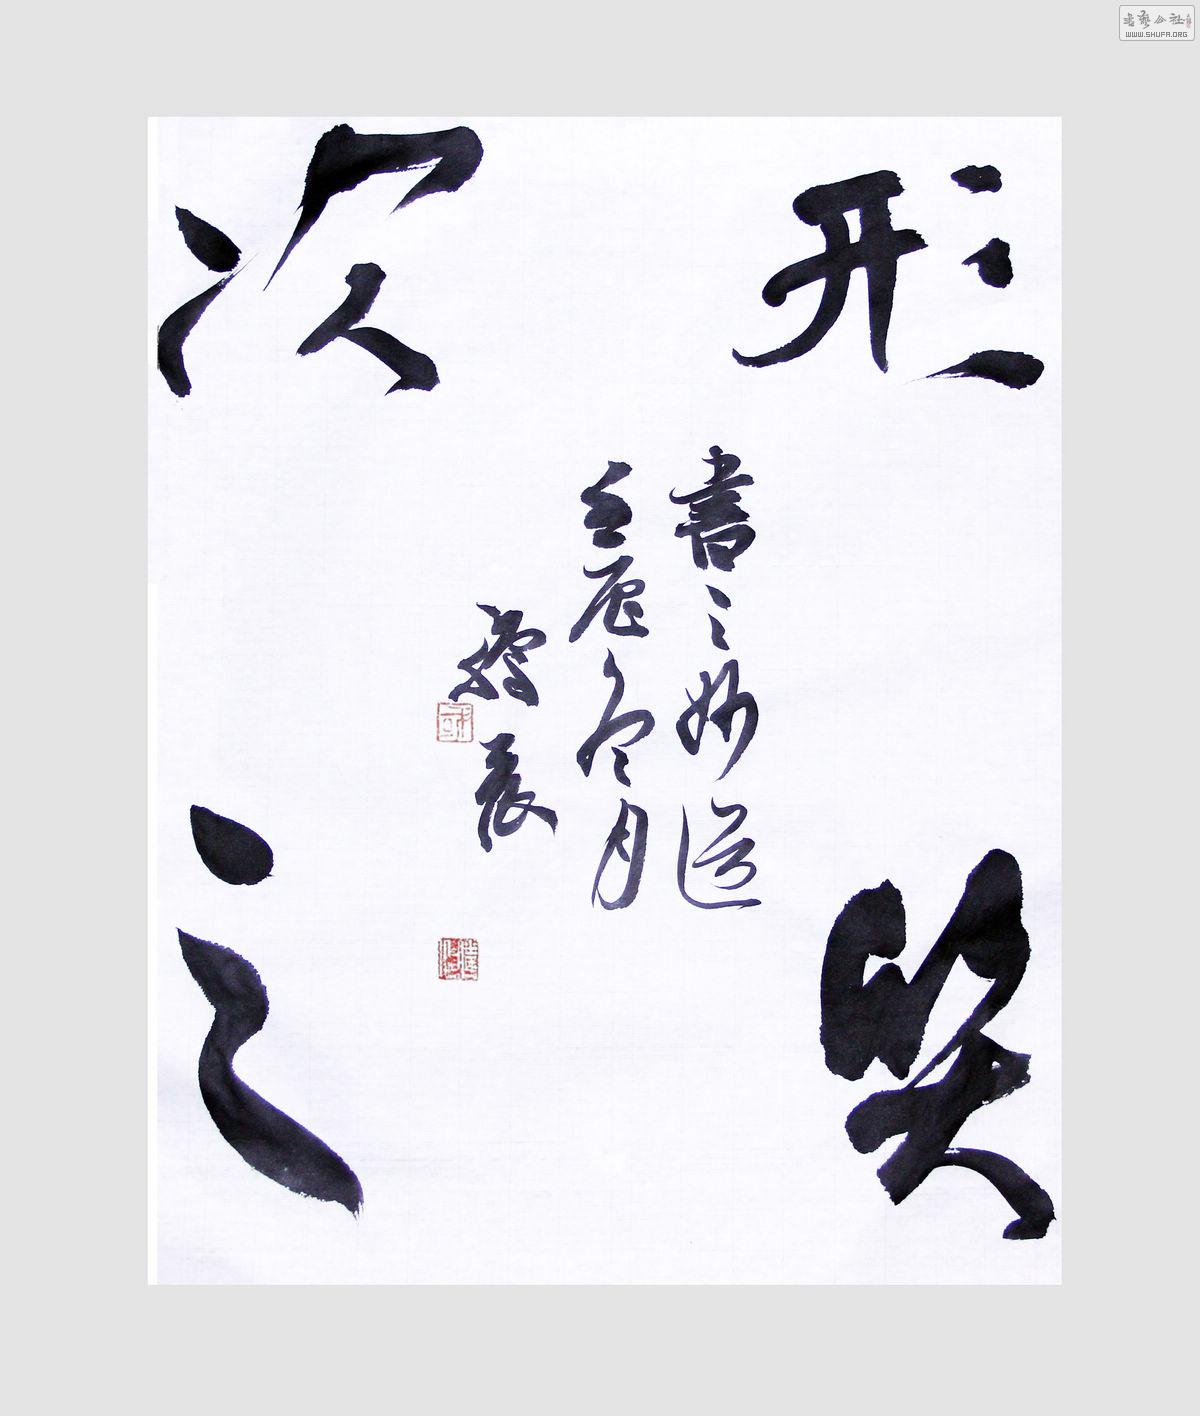 形質
次之
書之妙道
壬辰冬月
书艺公社
WWW.SHUFA.ORG